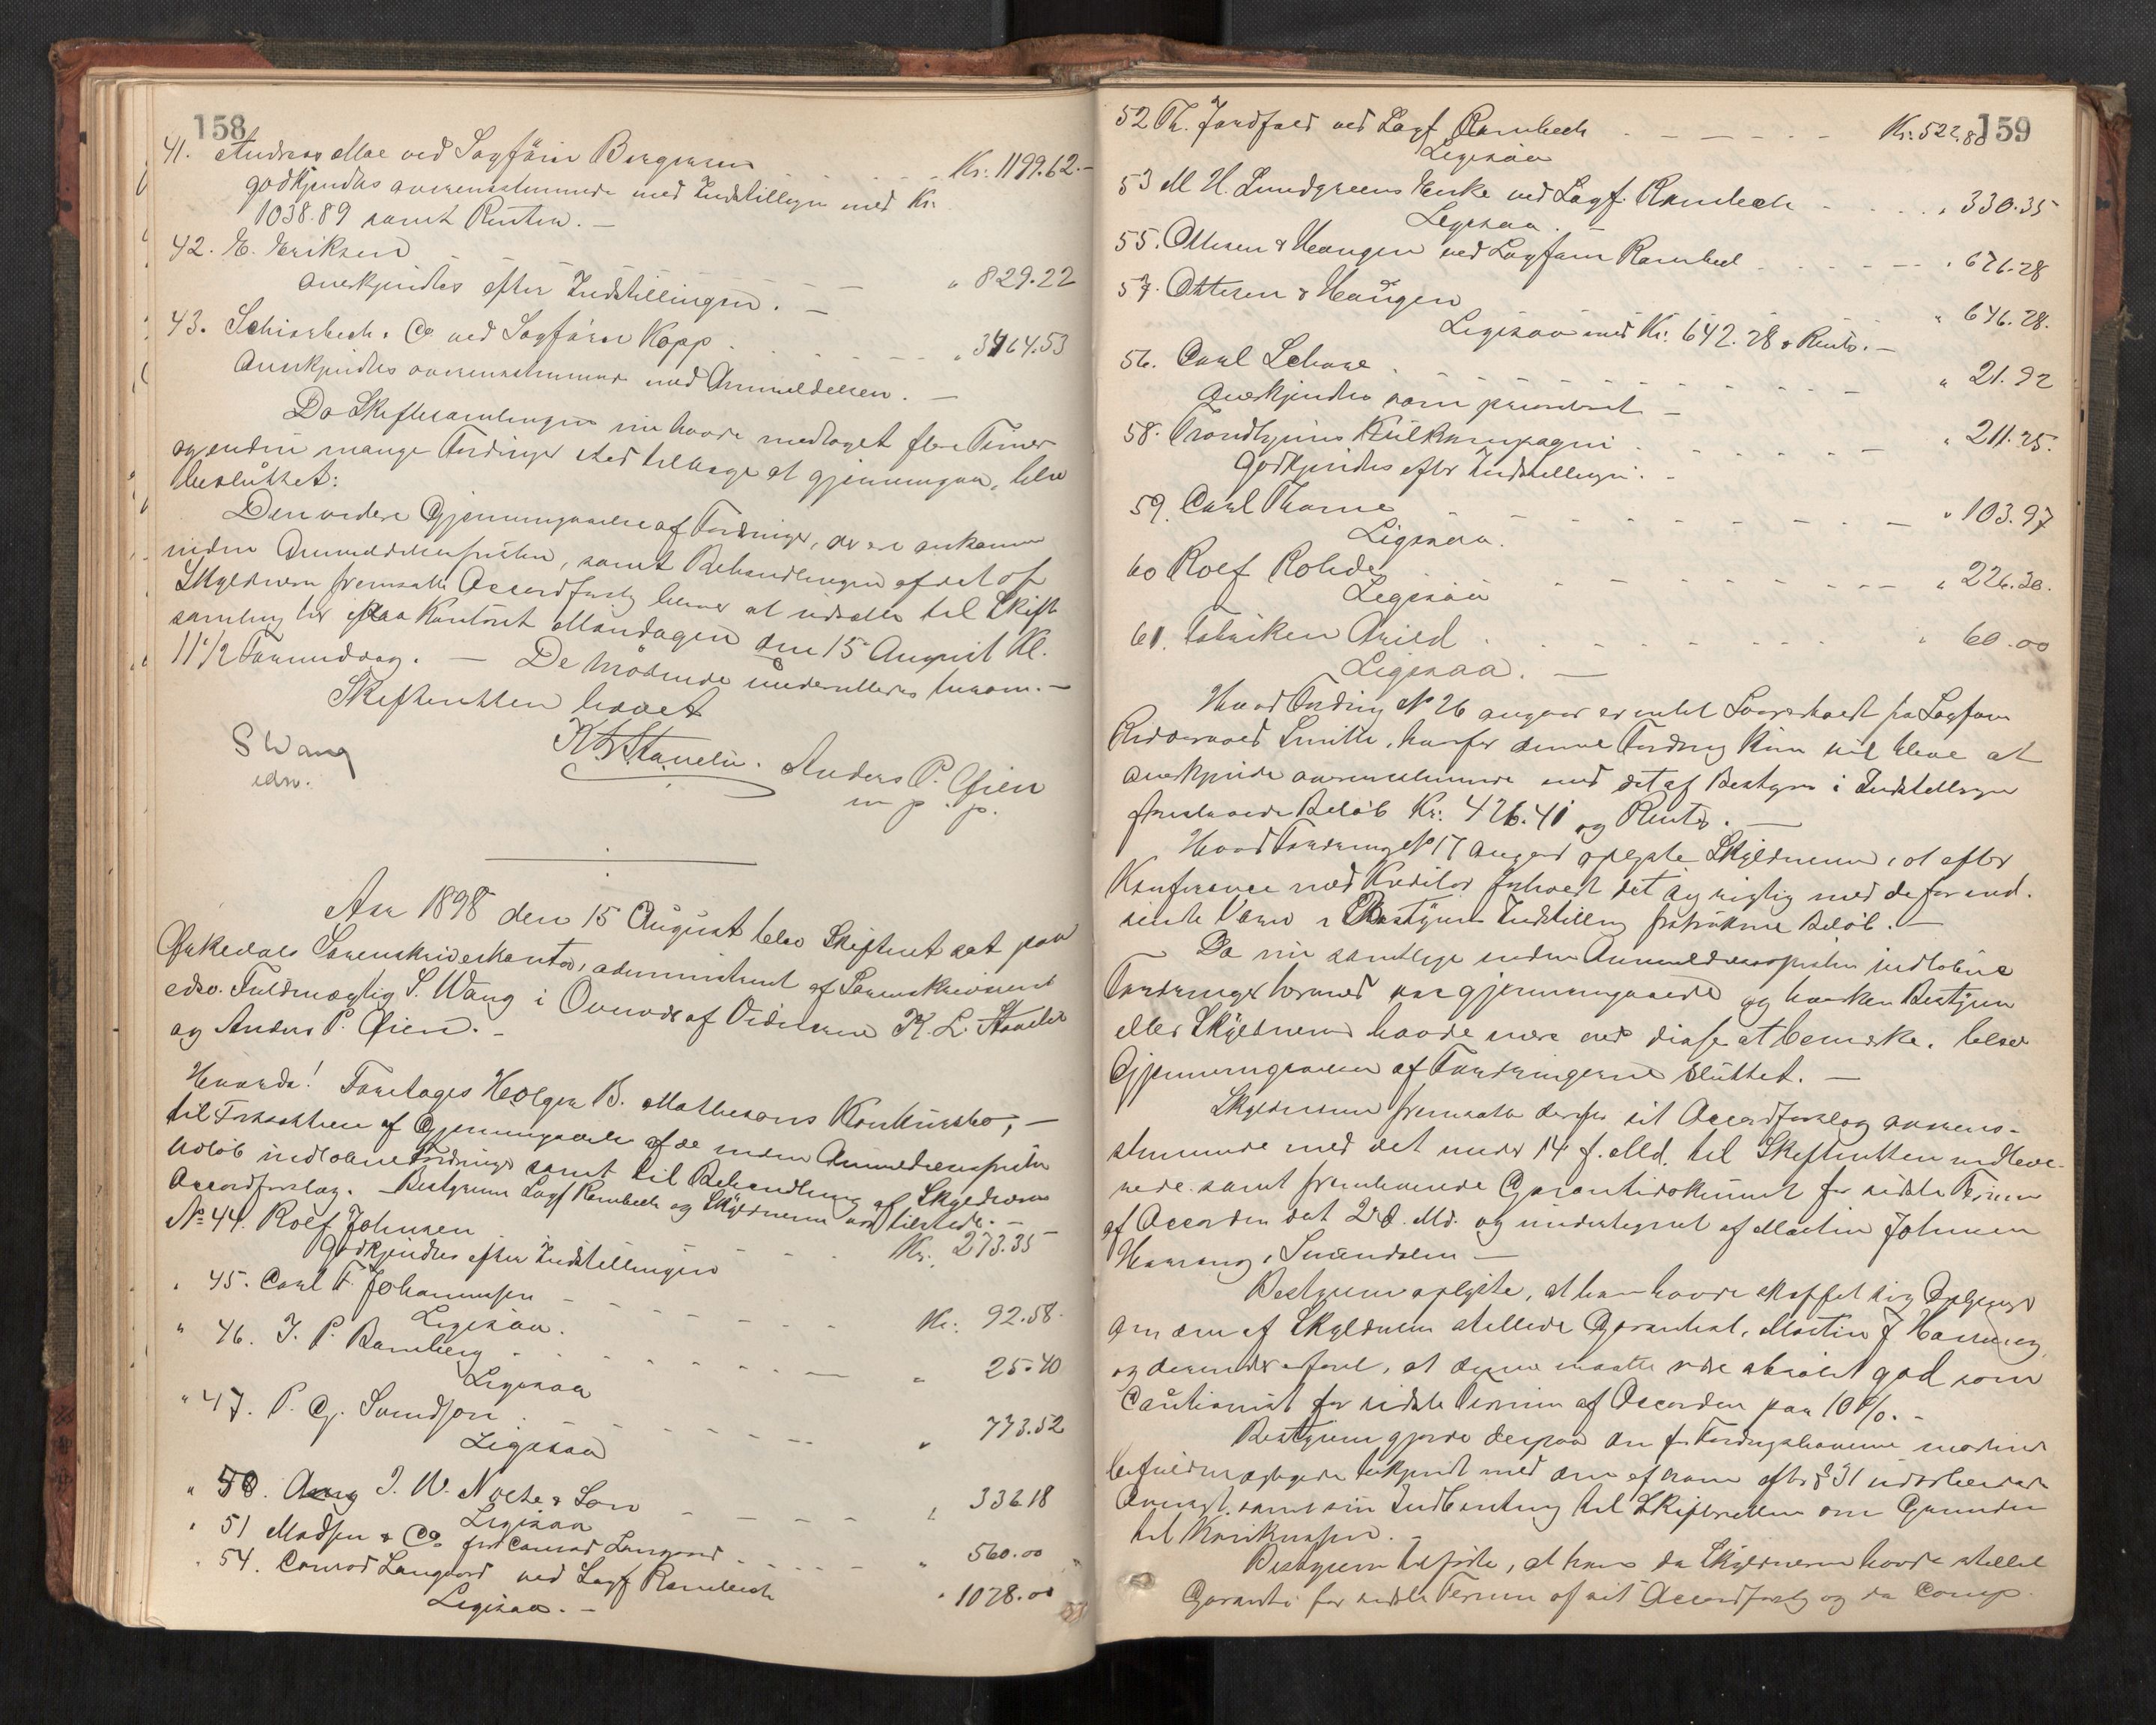 158
41. Andreas Moe ved Sagfører Borgersen Kr. 1199.62.-
godkjendtes overensstemmende med Indstillingen med Kr.
1038.89 samt Renter. -
42. E. Eriksen " 829.22
anerkjendtes efter Indstillingen. -
43. Schiørbech & Co ved Sagfører Kopp " 3464.53
Anerkjendtes overensstemmende med Anmeldelsen. -
Da Skiftesamlingen nu havde medtaget flere Timer
og endnu mange Fordringer stod tilbage at gjennemgaa, blev
besluttet:
Den videre Gjennemgaaelse af Fordringer, der er ankomne
inden Anmeldelsesfristen, samt Behandlingen af det af
Skyldneren fremsatte Accordforslag bliver at udsætte til Skifte
samling her paa Kontoret Mandagen den 15 August Kl.
11 1/2 Formiddag. - De Mødende underrettedes herom. -
Skifteretten hævet
S Wang
edsv.
K L Stavelin. Anders P. Øien
m. p. p.
Aar 1898 den 15 August blev Skifteret sat paa
Orkedals Sorenskriverkontor, administreret af Sorenskriverens
edsv. Fuldmægtig S. Wang i Overvær af Vidnerne K. L. Stavelin
og Anders P. Øien. -
Hvorda! Foretages Holger B. Mathesons Konkursbo, -
til Fortsættelse af Gjennemgaaelse af de inden Anmeldelsesfristens
Udløb indkomne Fordringer samt til Behandling af Skyldnerens
Accordforslag. - Bestyreren Sagf Rambech og Skyldneren var tilstede. -
No 44. Rolf Johnsen Kr. 273.35
Godkjendtes efter Indstillingen
" 45. Carl F. Johannesen Kr. 92.58.
Ligesaa.
" 46. J. P. Ramberg " 25.40
Ligesaa
" 47. P. G. Svendsen " 773.52
Ligesaa
" 50. J. W. Nocke & Søn " 336.18
Ligesaa
" 51 Madsen & Co for Conrad Langaard " 560.00
" 54. Conrad Langaard ved Sagf Rambech " 1078.00
Ligesaa. -
159
52 Th. Jordfald ved Sagf Rambech Kr. 522.80
Ligesaa
53 M. H. Lundgreens Enke ved Sagf. Rambech " 330.35
Ligesaa.
55. Ottesen & Haugen ved Sagfører Rambech " 676.28
57. Ottesen & Haugen " 646.28.
Ligesaa med Kr. 642.28 & Rente. -
56. Carl Schare " 21.92
Anerkjendes som prioriteret -
58. Trondhjems Kulkompagni " 211.25.
Godkjendtes efter Indstillingen. -
59. Carl Thorne " 103.97
Ligesaa.
60 Rolf Rohde " 226.30.
Ligesaa
61. Fabriken Arild " 60.00
Ligesaa. -
Hvad Fordring No 26 angaar er intet Svar havt fra Sagfører
Ridderwold Smith, hvorfor denne Fordring kun vil blive at
anerkjende overensstemmende med det af Bestyreren i Indstillingen
foreslaaede Beløb Kr. 426.41 og Renter. -
Hvad Fordring No 17 angaar oplyste Skyldneren, at efter
Konference med Kreditor forholdt det sig rigtig med de for ind-
sendte Varer i Bestyrerens Indstilling fratrukne Beløb. -
Da nu samtlige inden Anmeldelsesfristen indkomne
Fordringer hermed var gjennemgaaede og hverken Bestyreren
eller Skyldneren havde mere ved disse at bemærke, blev
Gjennemgaaelsen af Fordringerne sluttet. -
Skyldneren fremsatte derefter sit Accordforslag overens-
stemmende med det under 14 f. Md. til Skifteretten indleve-
rede samt fremleverede Garantidokument for sidste Termin
af Accorden dat 2 d. Md. og undertegnet af Martin Johnsen
Haarang, Surendalen -
Bestyreren oplyste, at han havde skaffet sig Oplysning
om den af Skyldneren stillede Garantist, Martin J Haarang,
og derunder erfaret, at denne maatte være absolut god som
Cautionist for sidste Termin af Accorden paa 10 %. -
Bestyreren gjorde derpaa den for Fordringshaverne mødende
befuldmægtigede bekjendt med den af ham efter § 31 udarbeidede
Oversigt samt sin Indberetning til Skifteretten om Grunden
til Konkursen. -
Bestyreren tilføiede, at han da Skyldneren havde stillet
Garanti for sidste Termin af sit Accordforslag og da Comp.